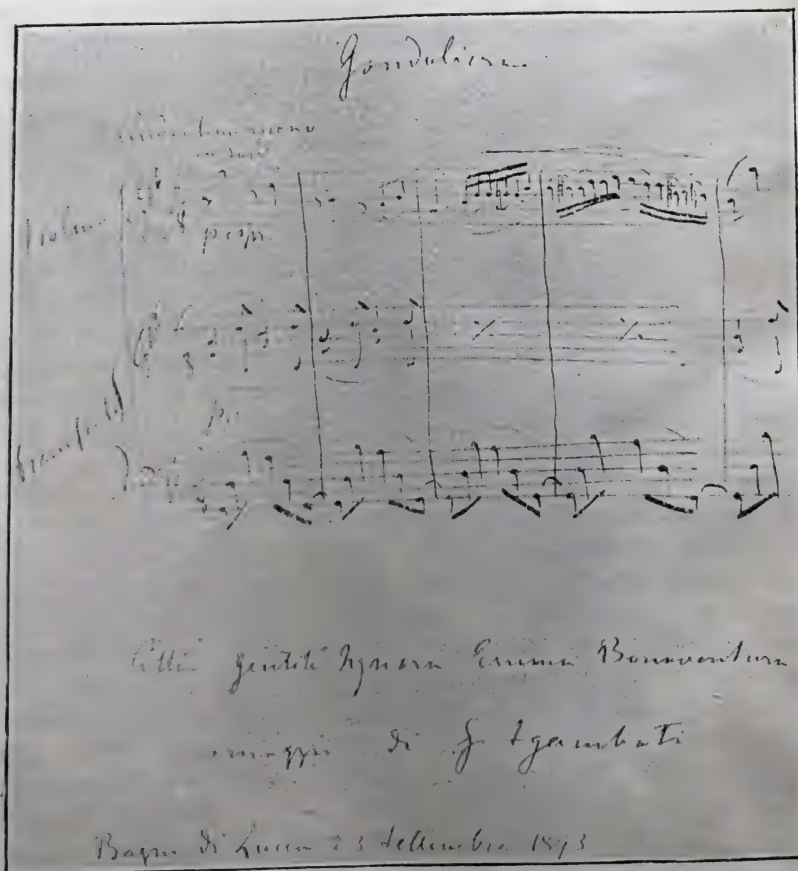 Gondoliera
Violino
p espr.
Pianoforte
Alla gentile Signora Emma Bonaventura
omaggio di G Sgambati
Bagni di Lucca 23 Settembre 1893